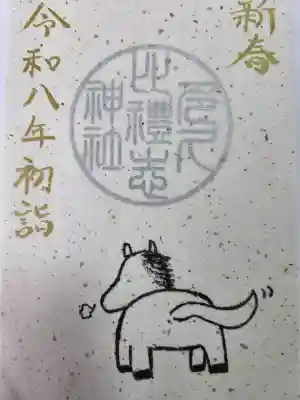 新春
多久
比禮志
神社
令和八年初詣